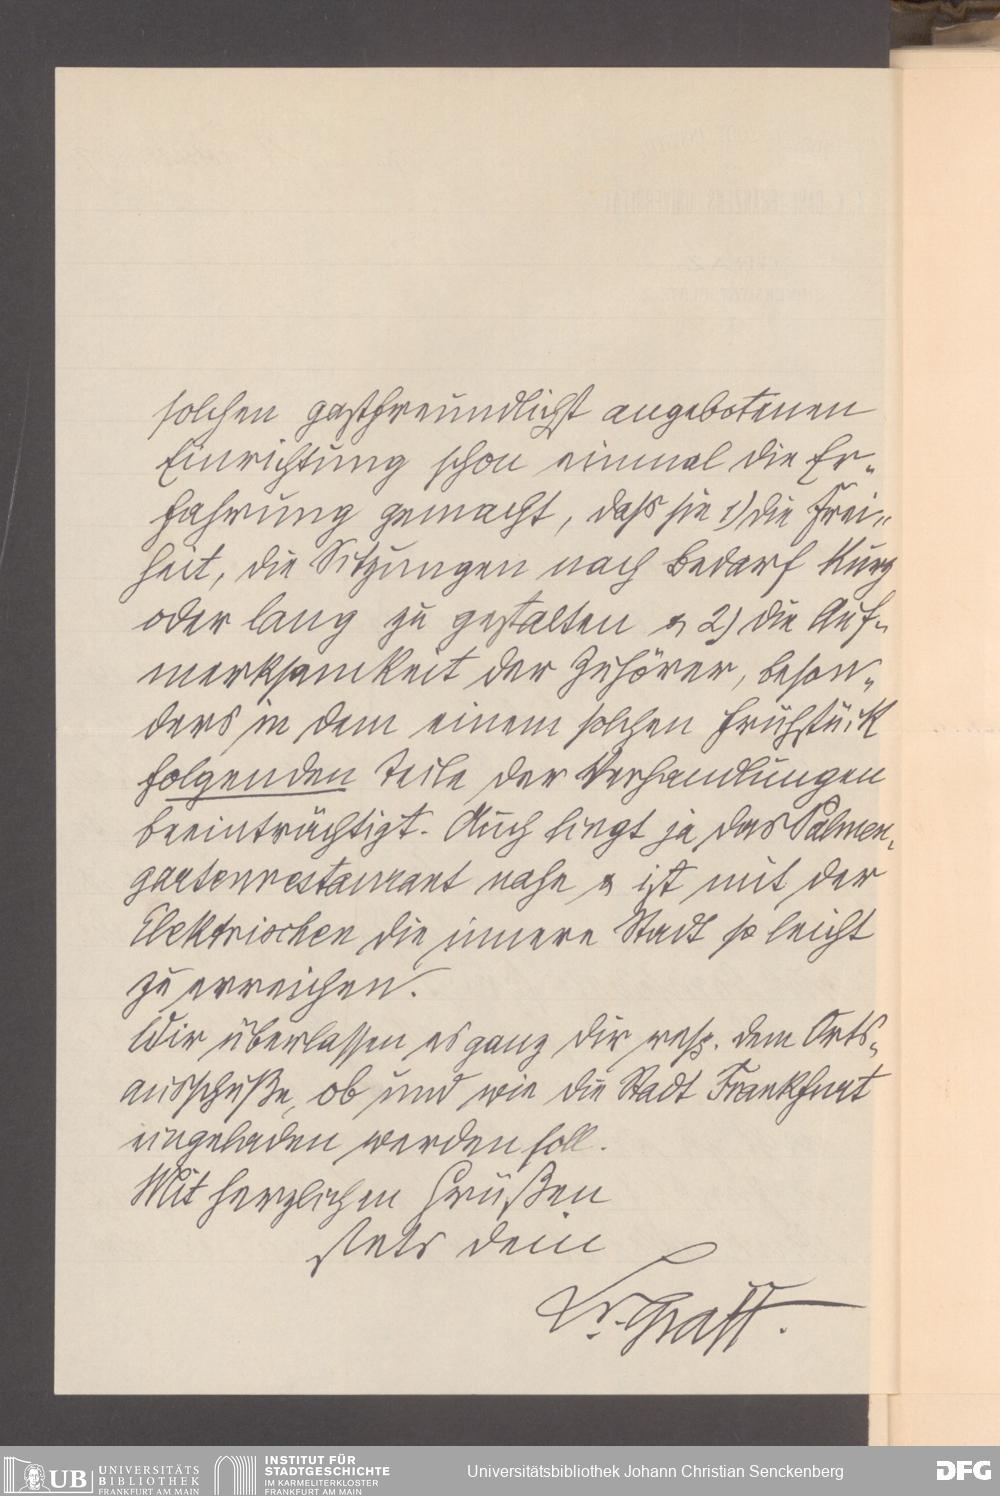 solchen gastfreundlichst angebotenen
Einrichtung schon einmal die Er-
fahrung gemacht, daß sie 1) die Frei-
heit, die Sitzungen nach Bedarf kurz
oder lang zu gestalten & 2) die Auf-
merksamkeit der Zuhörer, beson-
ders in dem einem solchen Frühstück
folgenden Teile der Verhandlungen
beeinträchtigt. Auch liegt ja das Palmen-
gartenrestaurant nahe & ist mit der
Elektrischen die innere Stadt so leicht
zu erreichen.
Wir überlassen es ganz dir resp. dem Orts-
ausschuße, ob und wie die Stadt Frankfurt
eingeladen werden soll.
Mit herzlichen Grüßen
stets dein
Graff.
UB UNIVERSITÄTS
BIBLIOTHEK
FRANKFURT AM MAIN
INSTITUT FÜR
STADTGESCHICHTE
IM KARMELITERKLOSTER
FRANKFURT AM MAIN
Universitätsbibliothek Johann Christian Senckenberg
DFG